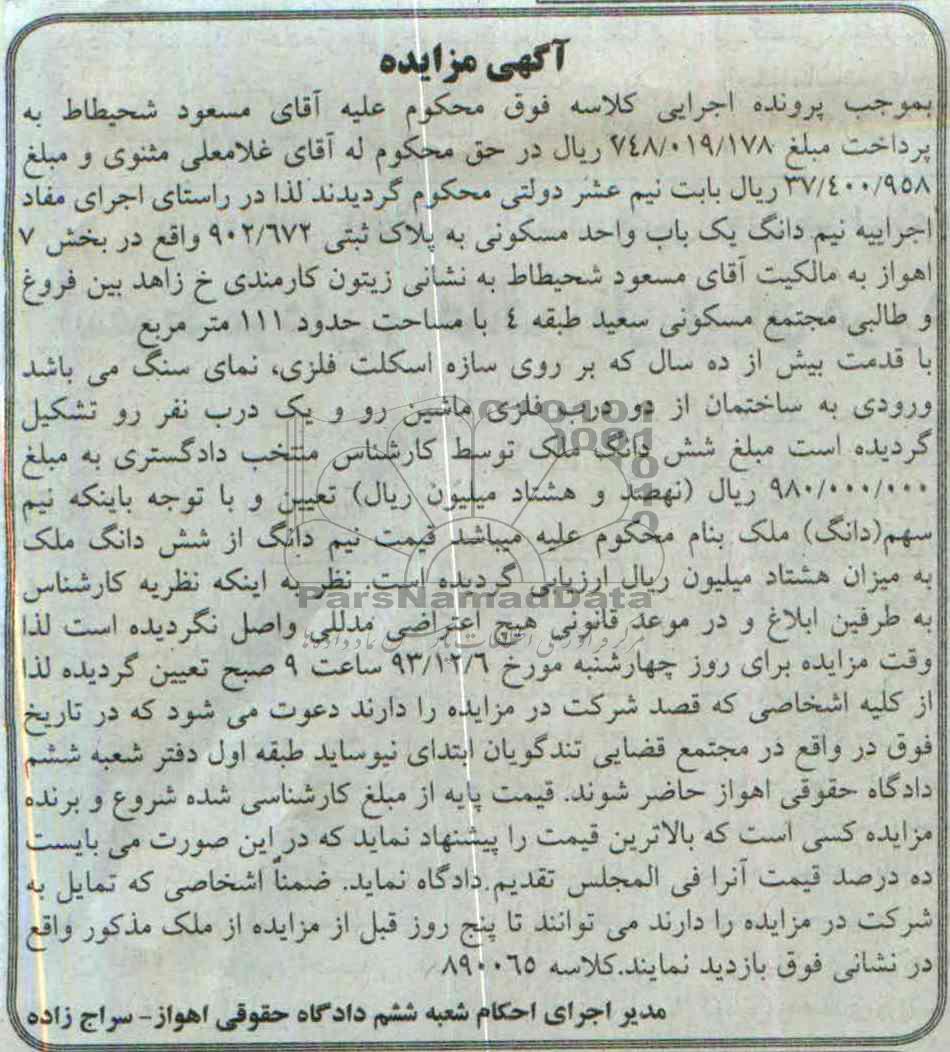 آگهی مزایده
بموجب پرونده اجرایی کلاسه فوق محکوم علیه آقای مسعود شحیطاط به
پرداخت مبلغ ٧٤٨/٠١٩/١٧٨ ریال در حق محکوم له آقای غلامعلی مثنوی و مبلغ
٣٧/٤٠٠/٩٥٨ ریال بابت نیم عشر دولتی محکوم گردیدند لذا در راستای اجرای مفاد
اجراییه نیم دانگ یک باب واحد مسکونی به پلاک ثبتی ٩٠٢/٦٧٢ واقع در بخش ٧
اهواز به مالکیت آقای مسعود شحیطاط به نشانی زیتون کارمندی خ زاهد بین فروغ
و طالبی مجتمع مسکونی سعید طبقه ٤ با مساحت حدود ١١١ متر مربع
با قدمت بیش از ده سال که بر روی سازه اسکلت فلزی، نمای سنگ می باشد
ورودی به ساختمان از دو درب فلزی ماشین رو و یک درب نفر رو تشکیل
گردیده است مبلغ شش دانگ ملک توسط کارشناس منتخب دادگستری به مبلغ
٩٨٠/٠٠٠/٠٠٠ ریال (نهصد و هشتاد میلیون ریال) تعیین و با توجه باینکه نیم
سهم(دانگ) ملک بنام محکوم علیه میباشد قیمت نیم دانگ از شش دانگ ملک
به میزان هشتاد میلیون ریال ارزیابی گردیده است. نظر به اینکه نظریه کارشناس
ParsNamadData
به طرفین ابلاغ و در موعد قانونی هیچ اعتراضی مدللی واصل نگردیده است لذا
وقت مزایده برای روز چهارشنبه مورخ ٩٣/١٢/٦ ساعت ٩ صبح تعیین گردیده لذا
از کلیه اشخاصی که قصد شرکت در مزایده را دارند دعوت می شود که در تاریخ
فوق در واقع در مجتمع قضایی تندگویان ابتدای نیوساید طبقه اول دفتر شعبه ششم
دادگاه حقوقی اهواز حاضر شوند. قیمت پایه از مبلغ کارشناسی شده شروع و برنده
مزایده کسی است که بالاترین قیمت را پیشنهاد نماید که در این صورت می بایست
ده درصد قیمت آنرا فی المجلس تقدیم دادگاه نماید. ضمناً اشخاصی که تمایل به
شرکت در مزایده را دارند می توانند تا پنج روز قبل از مزایده از ملک مذکور واقع
در نشانی فوق بازدید نمایند.کلاسه ٨٩٠٠٦٥
مدیر اجرای احکام شعبه ششم دادگاه حقوقی اهواز- سراج زاده